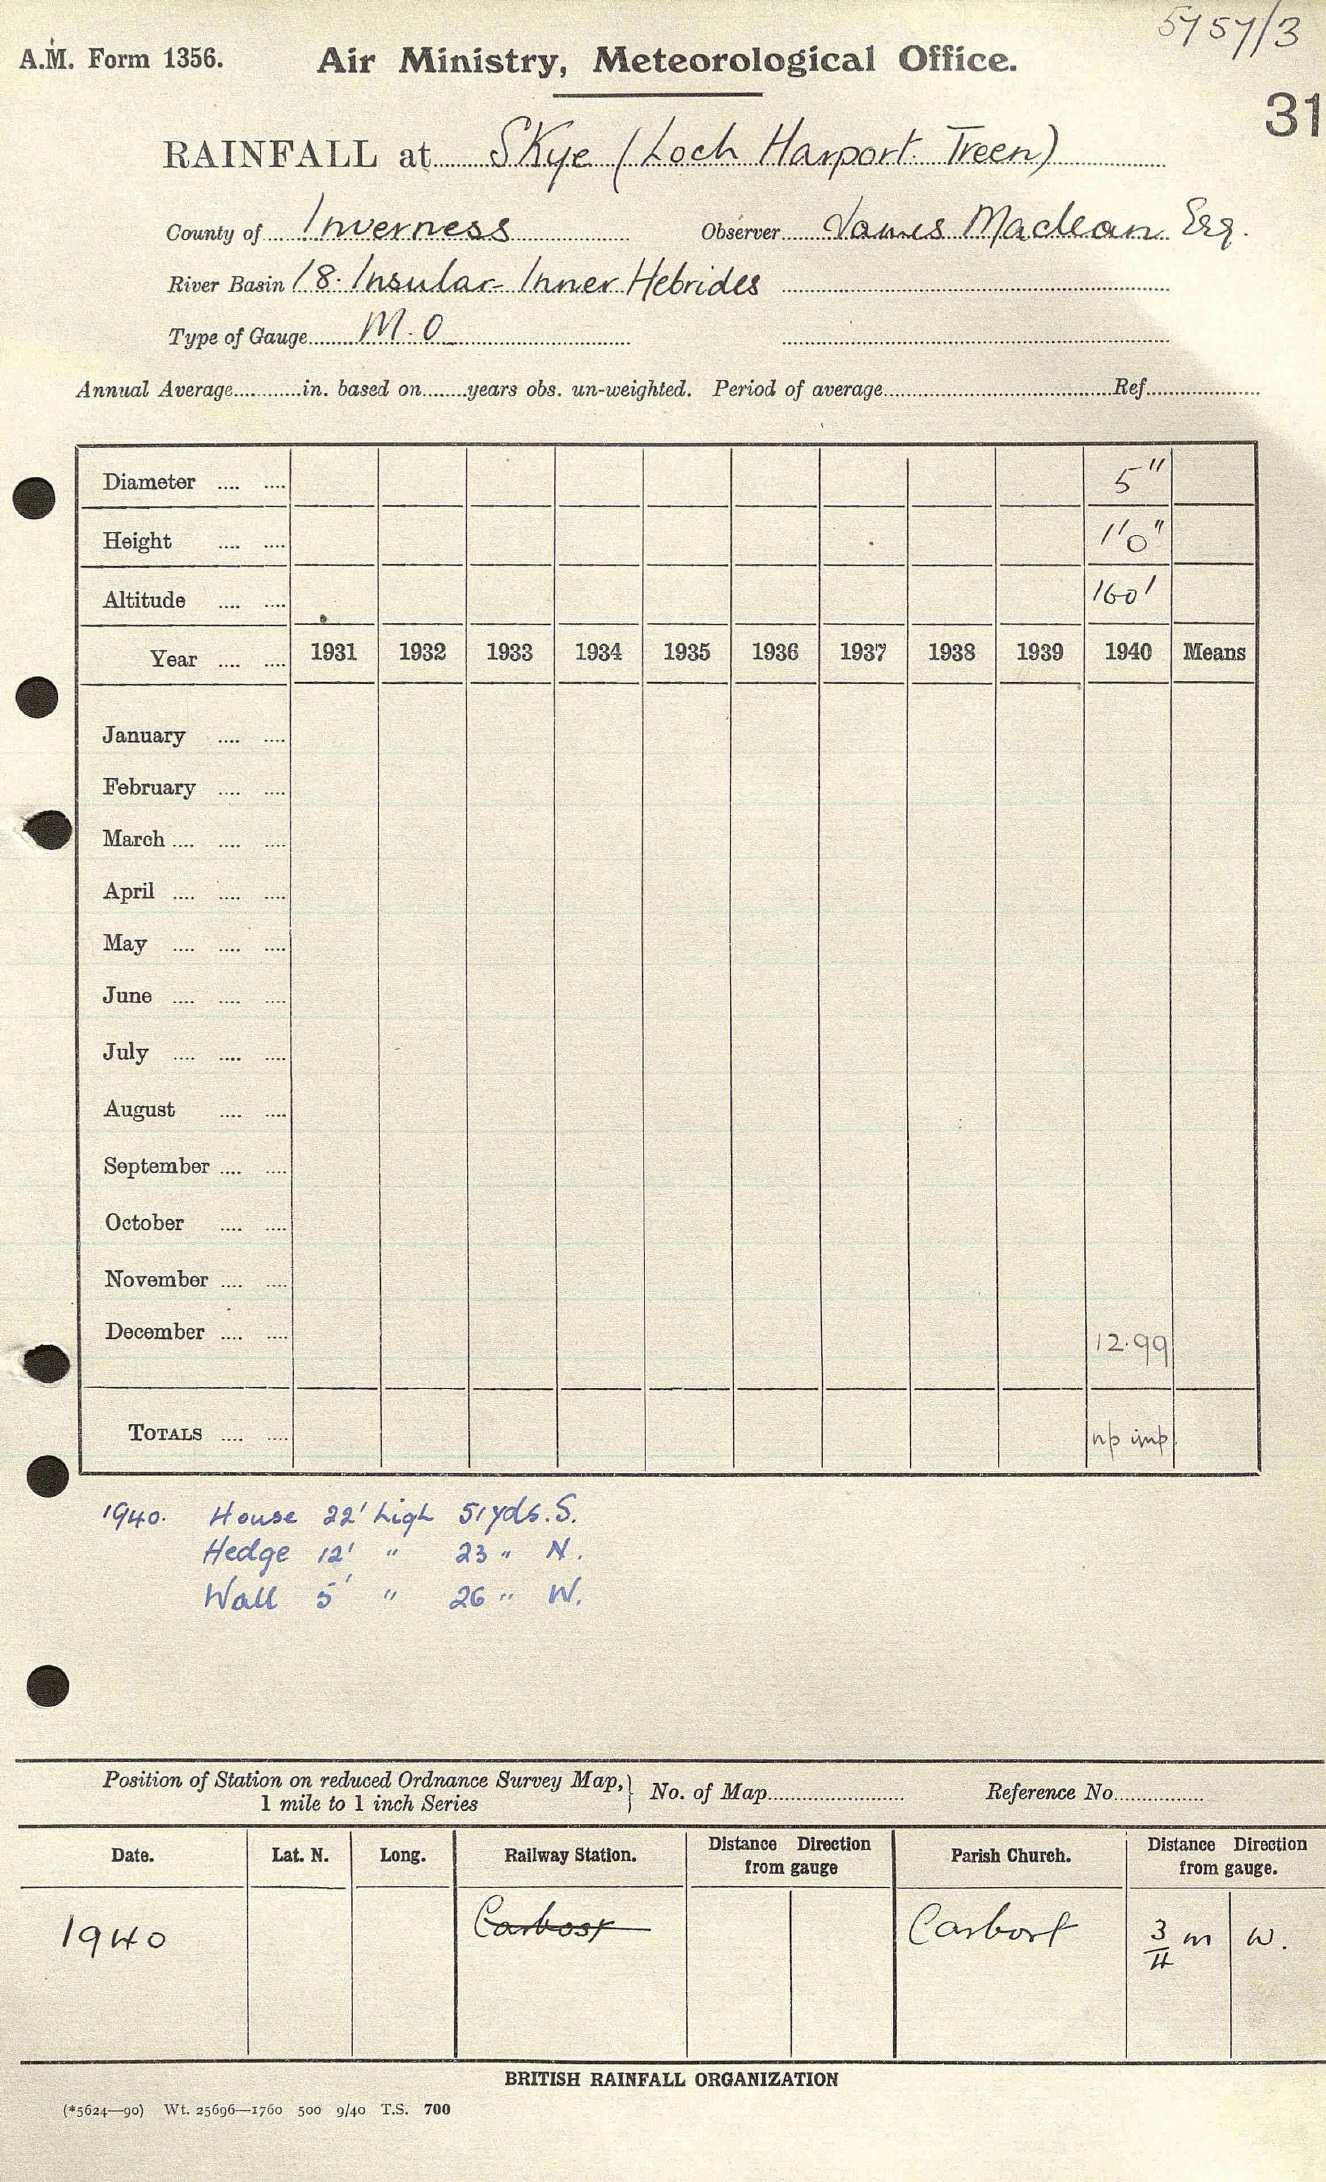 5757/3
A.M. Form 1356.
Air Ministry, Meteorological Office.
31
RAINFALL at Skye (Loch Harport. Treen)
County of Inverness Observer James Maclean Esq.
River Basin 18. Insular - Inner Hebrides
Type of Gauge M.O
Annual Average............in. based on........years obs. un-weighted. Period of average.......................................Ref...................
Diameter .... .... 5"
Height .... .... 1'0"
Altitude .... .... 160'
Year .... .... 1931 1932 1933 1934 1935 1936 1937 1938 1939 1940 Means
January .... ....
February .... ....
March .... .... ....
April .... .... ....
May .... .... ....
June .... .... ....
July .... .... ....
August .... ....
September .... ....
October .... ....
November .... ....
December .... .... 12.99
TOTALS .... .... np imp.
1940. House 22' high 51 yds. S.
Hedge 12' " 23 " N.
Wall 5' " 26 " W.
Position of Station on reduced Ordnance Survey Map,
1 mile to 1 inch Series
No. of Map....................... Reference No...............
Date. Lat. N. Long. Railway Station. Distance Direction from gauge Parish Church. Distance Direction from gauge.
1940 Carbost Carbost 3/4 m W.
BRITISH RAINFALL ORGANIZATION
(*5624—90) Wt. 25696—1760 500 9/40 T.S. 700